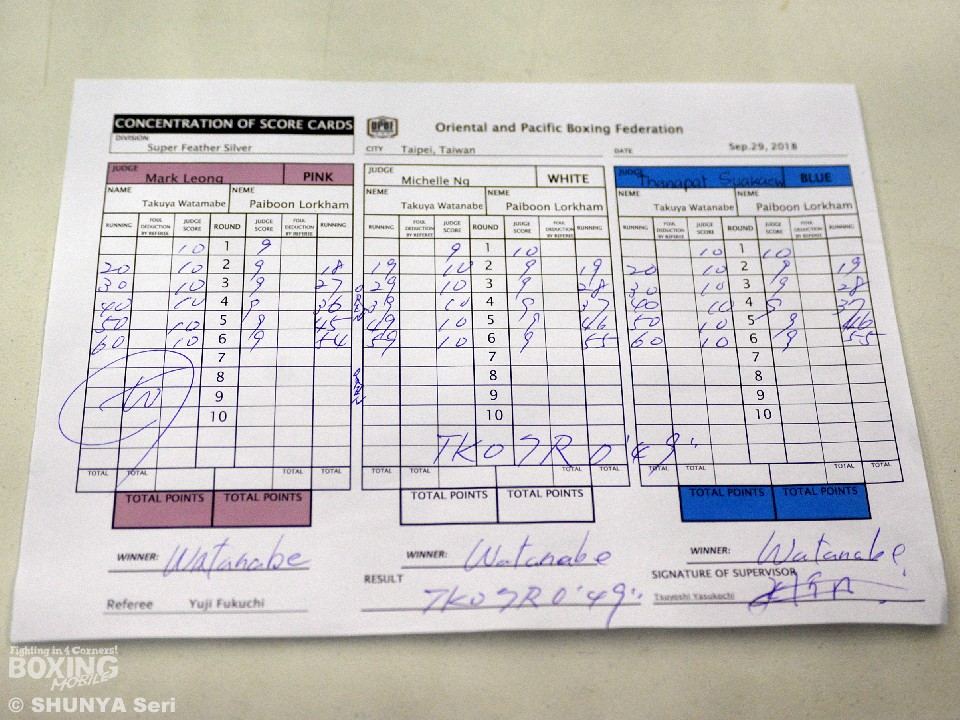 CONCENTRATION OF SCORE CARDS OPBF Oriental and Pacific Boxing Federation
DIVISION Super Feather Silver CITY Taipei, Taiwan DATE Sep.29, 2018
JUDGE Mark Leong PINK JUDGE Michelle Ng WHITE JUDGE Thanapat BLUE
NAME NEME NEME NEME NEME NEME
Takuya Watamabe Paiboon Lorkham Takuya Watanabe Paiboon Lorkham Takuya Watanabe Paiboon Lorkham
RUNNING FOUL DEDUCTION BY REFEREE JUDGE SCORE ROUND JUDGE SCORE FOUL DEDUCTION BY REFEREE RUNNING RUNNING FOUL DEDUCTION BY REFEREE JUDGE SCORE ROUND JUDGE SCORE FOUL DEDUCTION BY REFEREE RUNNING RUNNING FOUL DEDUCTION BY REFEREE JUDGE SCORE ROUND JUDGE SCORE FOUL DEDUCTION BY REFEREE RUNNING
10 1 9 9 1 10 10 1 10
20 10 2 9 18 19 10 2 9 19 20 10 2 9 19
30 10 3 9 27 29 10 3 9 28 30 10 3 9 28
40 10 4 9 36 39 10 4 9 37 40 10 4 9 37
50 10 5 9 45 49 10 5 9 46 50 10 5 9 46
60 10 6 9 54 59 10 6 9 55 60 10 6 9 55
7 7 7
8 8 8
9 9 9
10 10 10
TKO 7R 0'49"
TOTAL TOTAL TOTAL TOTAL TOTAL TOTAL TOTAL TOTAL TOTAL TOTAL
TOTAL POINTS TOTAL POINTS TOTAL POINTS TOTAL POINTS TOTAL POINTS TOTAL POINTS
WINNER: Watanabe WINNER: Watanabe WINNER: Watanabe
RESULT TKO 7R 0'49" SIGNATURE OF SUPERVISOR
Referee Yuji Fukuchi Tsuyoshi Yasukochi
Fighting in 4 Corners!
BOXING
MOBILE
© SHUNYA Seri